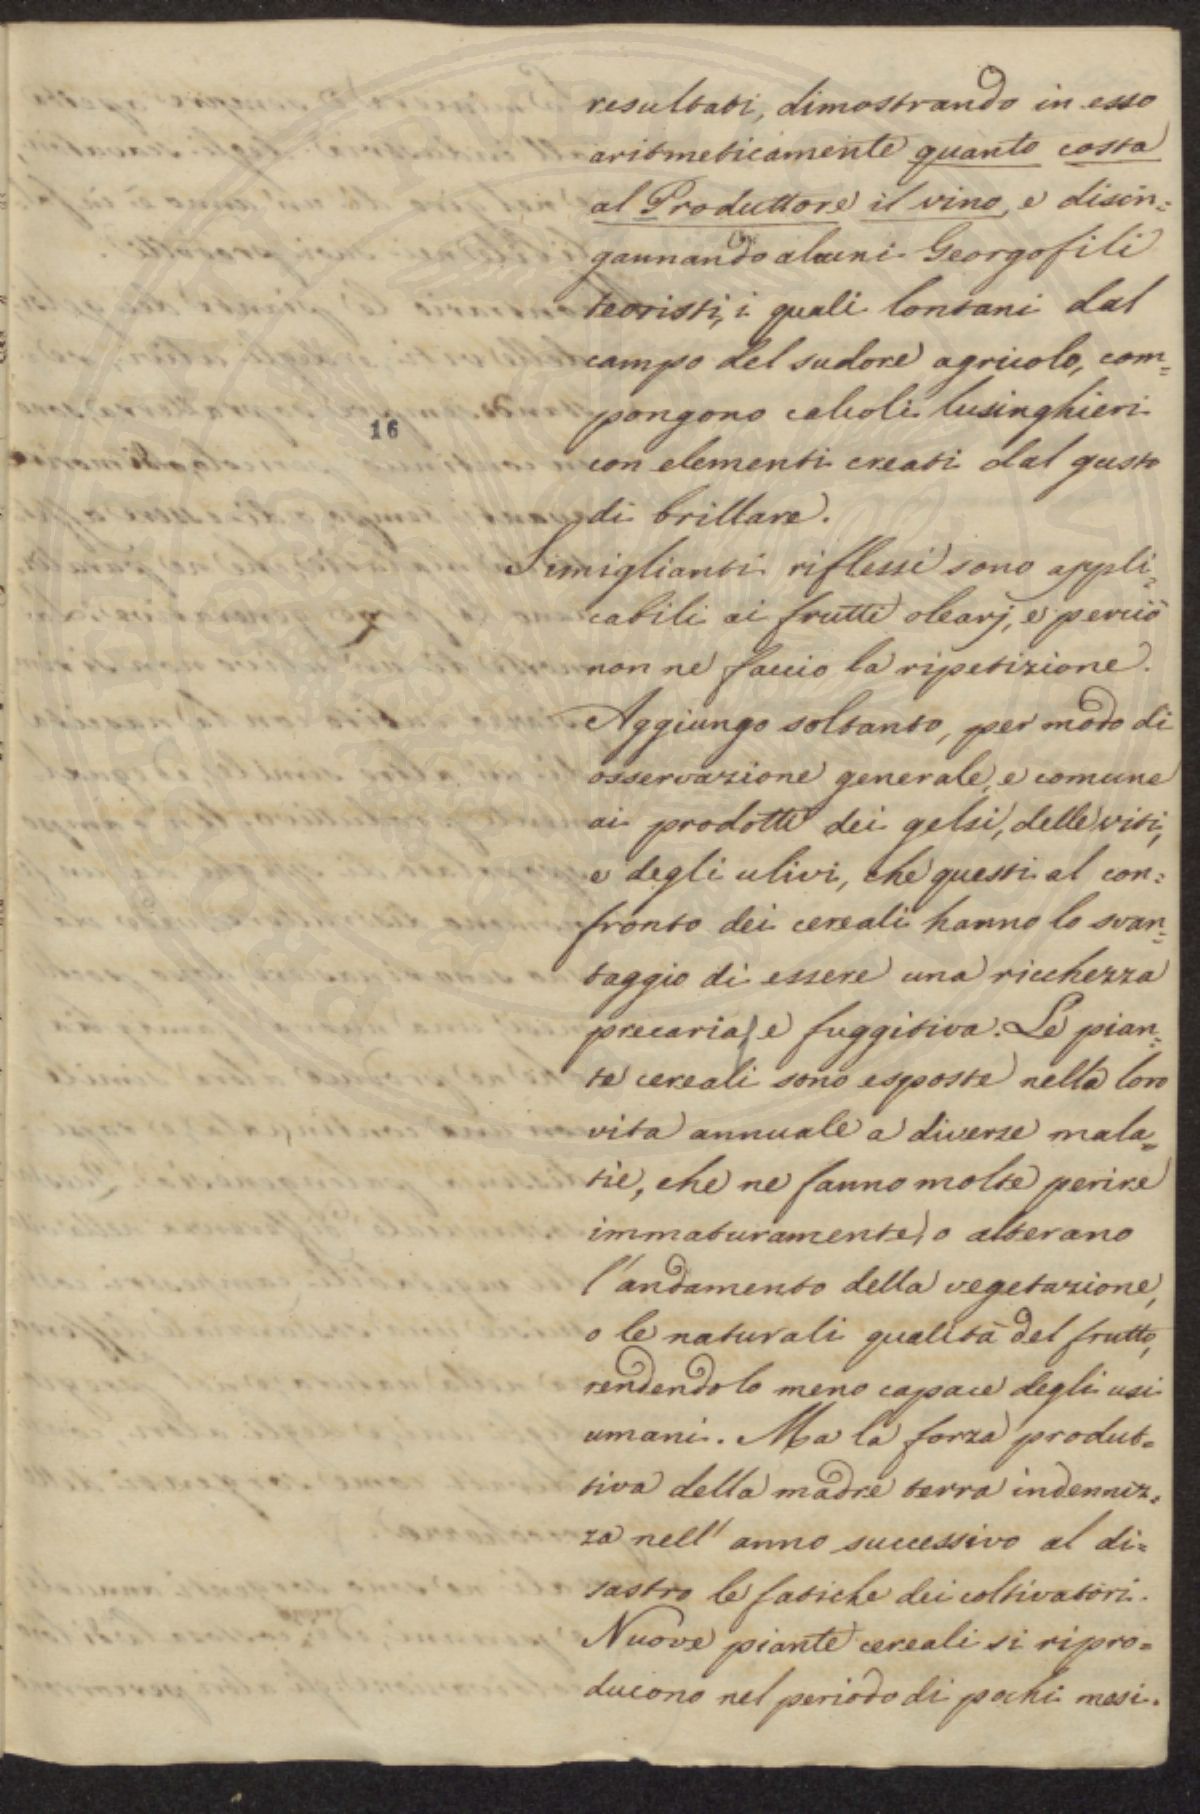 resultati, dimostrando in esso
aritmeticamente quanto costa
al Produttore il vino, e disin=
gannando alcuni Georgofili
teoristi, i quali lontani dal
campo del sudore agricolo, com=
pongono calcoli lusinghieri
16
con elementi creati dal gusto
di brillare.
Simiglianti riflessi sono appli=
cabili ai frutti olearj, e perciò
non ne faccio la ripetizione.
Aggiungo soltanto, per modo di
osservazione generale, e comune
ai prodotti dei gelsi, delle viti,
e degli ulivi, che questi al con=
fronto dei cereali hanno lo svan=
taggio di essere una ricchezza
precaria, e fuggitiva. Le pian=
te cereali sono esposte nella loro
vita annuale a diverse mala=
tie, che ne fanno molte perire
immaturamente, o alterano
l'andamento della vegetazione,
o le naturali qualità del frutto,
rendendolo meno capace degli usi
umani. Ma la forza produt=
tiva della madre terra indenniz=
za nell' anno successivo al di=
sastro le fatiche dei coltivatori.
Nuove piante cereali si ripro=
ducono nel periodo di pochi mesi.